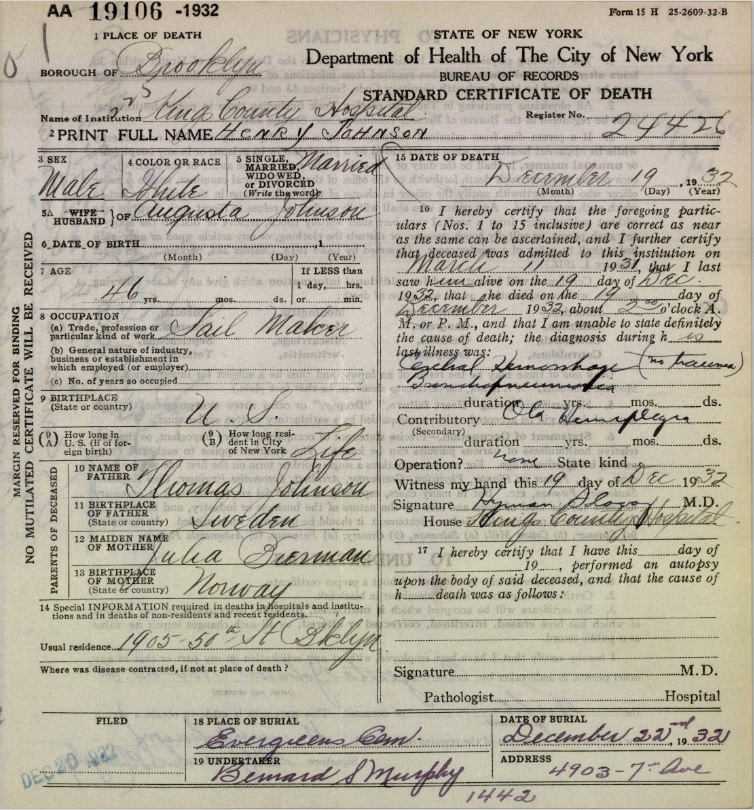 AA 19106 -1932
Form 15 H 25-2609-32-B
1 PLACE OF DEATH
BOROUGH OF Brooklyn
STATE OF NEW YORK
Department of Health of The City of New York
BUREAU OF RECORDS
STANDARD CERTIFICATE OF DEATH
Name of Institution Kings County Hospital
Register No. 24426
2 PRINT FULL NAME HENRY JOHNSON
MARGIN RESERVED FOR BINDING
NO MUTILATED CERTIFICATE WILL BE RECEIVED
3 SEX
Male
4 COLOR OR RACE
White
5 SINGLE, MARRIED, WIDOWED, or DIVORCED (Write the word)
Married
5A WIFE HUSBAND } OF Augusta Johnson
6 DATE OF BIRTH ,1
(Month) (Day) (Year)
7 AGE
46 yrs. mos. ds.
If LESS than
1 day, hrs.
or min.
8 OCCUPATION
(a) Trade, profession or
particular kind of work Sail Maker
(b) General nature of industry,
business or establishment in
which employed (or employer)
(c) No. of years so occupied
9 BIRTHPLACE
(State or country) U. S.
(9 A) How long in
U. S. (if of for-
eign birth)
(9 B) How long resi-
dent in City
of New York Life
PARENTS OF DECEASED
10 NAME OF
FATHER Thomas Johnson
11 BIRTHPLACE
OF FATHER
(State or country) Sweden
12 MAIDEN NAME
OF MOTHER Julia Bierman
13 BIRTHPLACE
OF MOTHER
(State or country) Norway
14 Special INFORMATION required in deaths in hospitals and institu-
tions and in deaths of non-residents and recent residents.
Usual residence 1905-50th St Bklyn
Where was disease contracted, if not at place of death?
15 DATE OF DEATH
December 19, 1932
(Month) (Day) (Year)
16 I hereby certify that the foregoing partic-
ulars (Nos. 1 to 15 inclusive) are correct as near
as the same can be ascertained, and I further certify
that deceased was admitted to this institution on
March 11 1931, that I last
saw him alive on the 19 day of Dec.
1932, that he died on the 19 day of
December 1932, about 2 00 o'clock A.
M. or P. M., and that I am unable to state definitely
the cause of death; the diagnosis during h is
last illness was:
Cerebral Hemorrhage (no trauma)
Bronchopneumonia
duration yrs. mos. ds.
Contributory Old Hemiplegia
(Secondary)
duration yrs. mos. ds.
Operation? none State kind
Witness my hand this 19 day of Dec 1932
Signature Hyman M.D.
House Kings County Hospital
17 I hereby certify that I have this day of
19 , performed an autopsy
upon the body of said deceased, and that the cause of
h death was as follows:
Signature M.D.
Pathologist Hospital
FILED
DEC 20 1932
18 PLACE OF BURIAL
Evergreens Cem.
DATE OF BURIAL
December 22nd, 1932
19 UNDERTAKER
Bernard S Murphy
1442
ADDRESS
4903-7th Ave